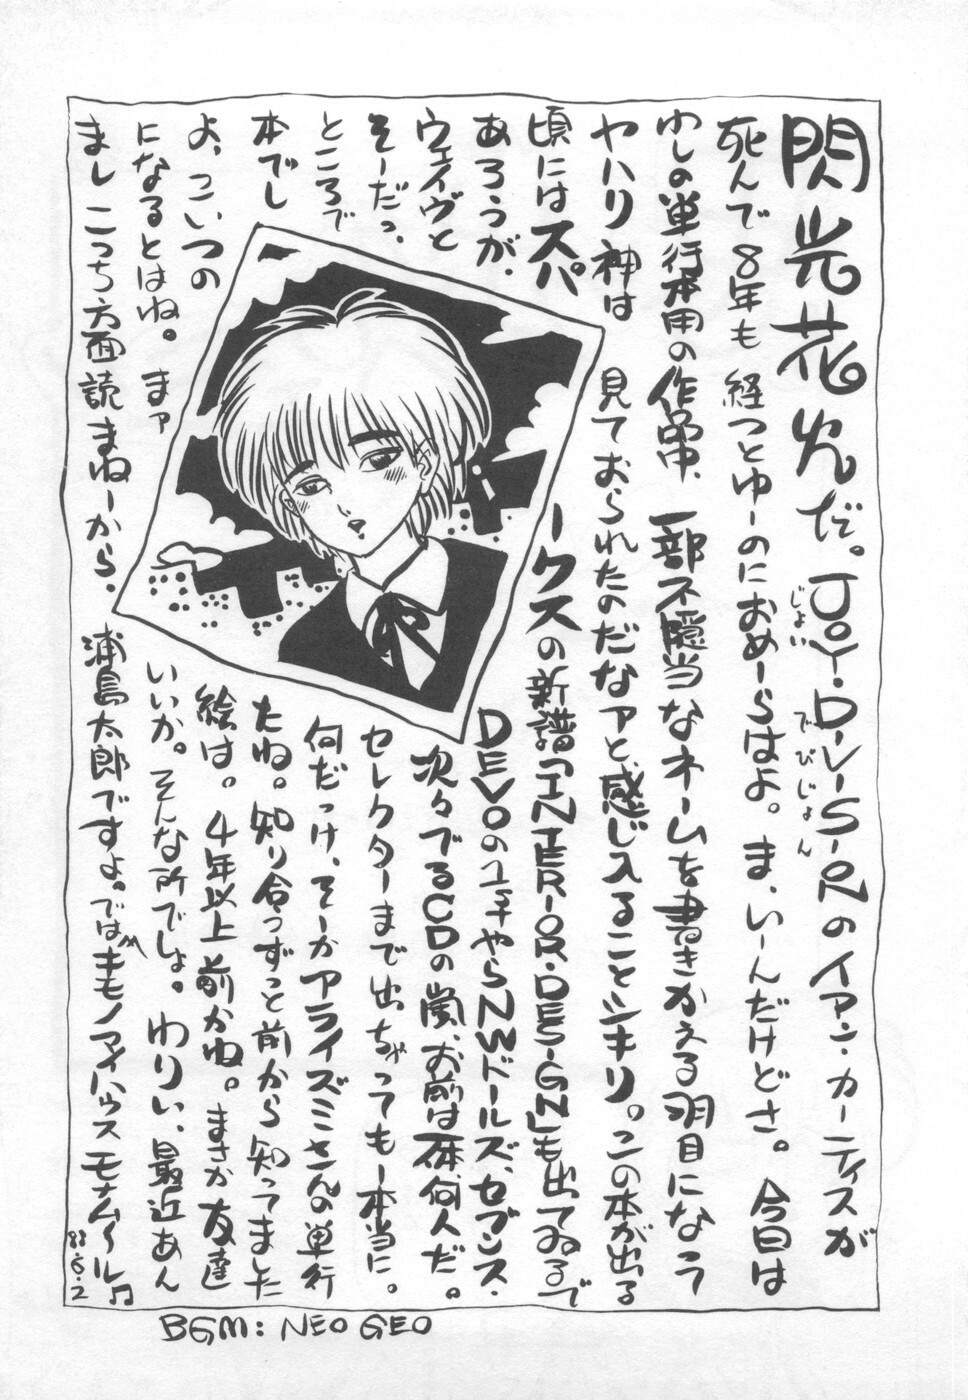 閃光花火だ。JOY・DIVISIONのイアン・カーティスが
じょい でびじょん
死んで8年も経つとゆーのにおめーらはよ。ま、いーんだけどさ。今日は
わしの単行本用の作業中、一部不隠当なネームを書きかえる羽目になって
ヤハリ神は 見ておられたのだなァと、感じ入ることシキリ。この本が出る
頃にはスパークスの新譜「INTERIOR・DESIGN」も出てゐるで
あろうが、DEVOのやらNWドールズ、セブンス・
ウェイヴと次々でるCDの嵐、お前は一体、何人だ。
そーだっ、セレクターまで出ちゃってもー本当に。
ところで何だっけ、そーかアライズミさんの単行
本でしたね。知り合うずっと前から知ってました
よ、こいつの絵は。4年以上前かね。まさか友達
になるとはね。まァいいか。そんな所でしょ。わりぃ、最近あん
ましこっち方面読まねーから。浦島太郎ですよ。ではキモノマイハウスモナムール♫
88・6・2
BGM: NEO GEO